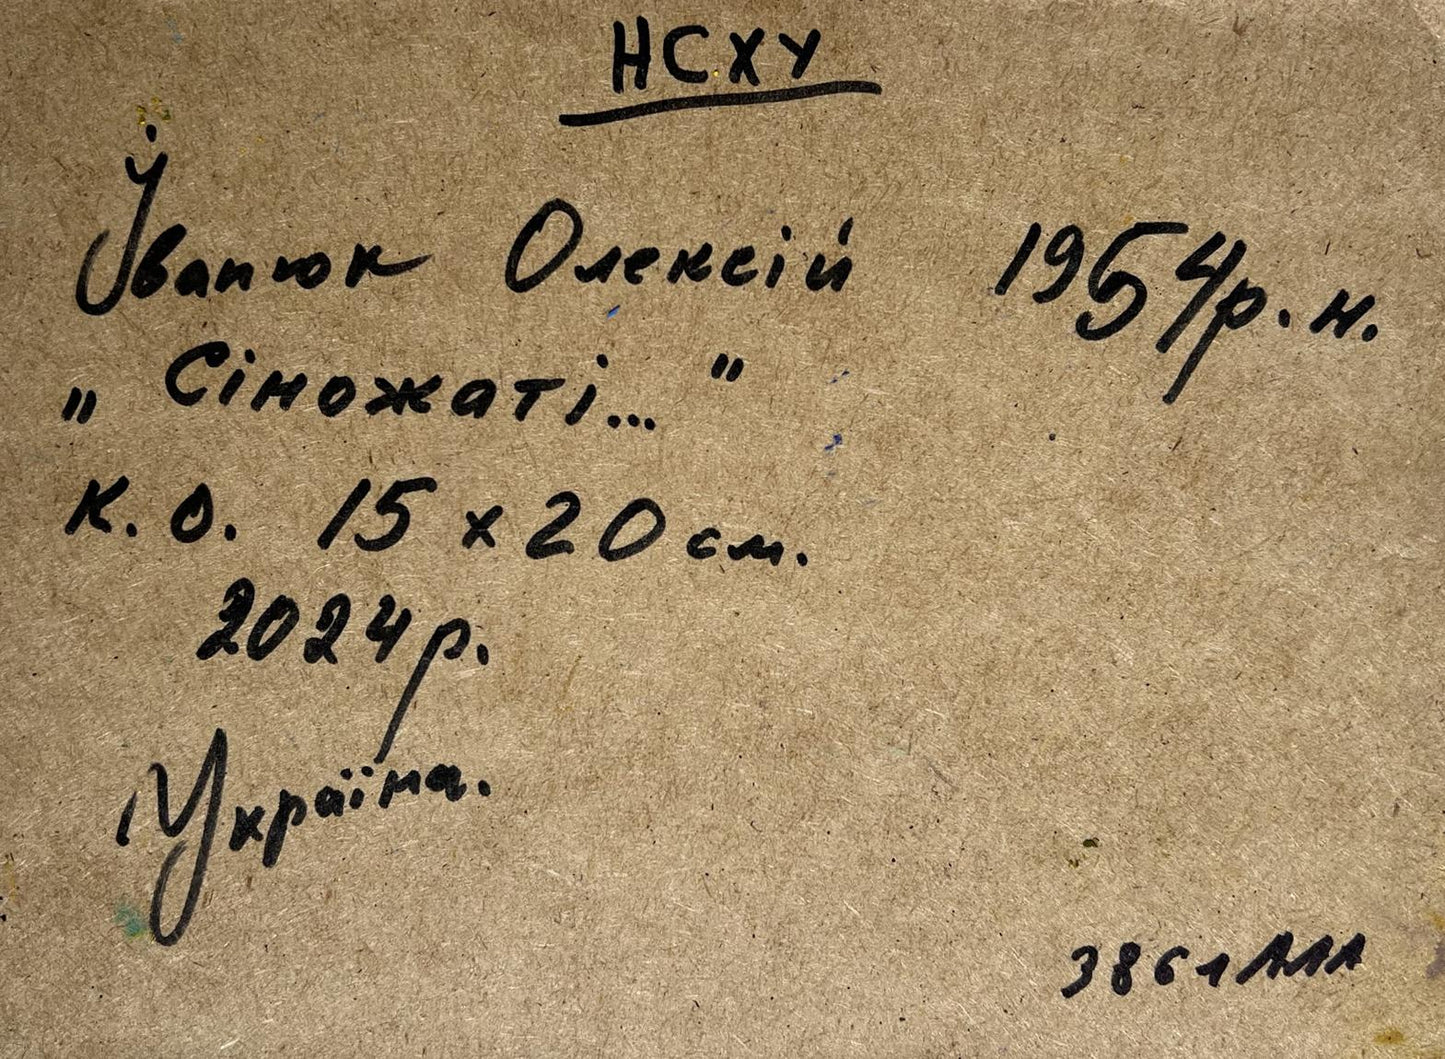 НСХУ
Іванюк Олексій 1954р. н.
„ Сіножаті... "
к. о. 15 x 20 см.
2024р.
Україна.